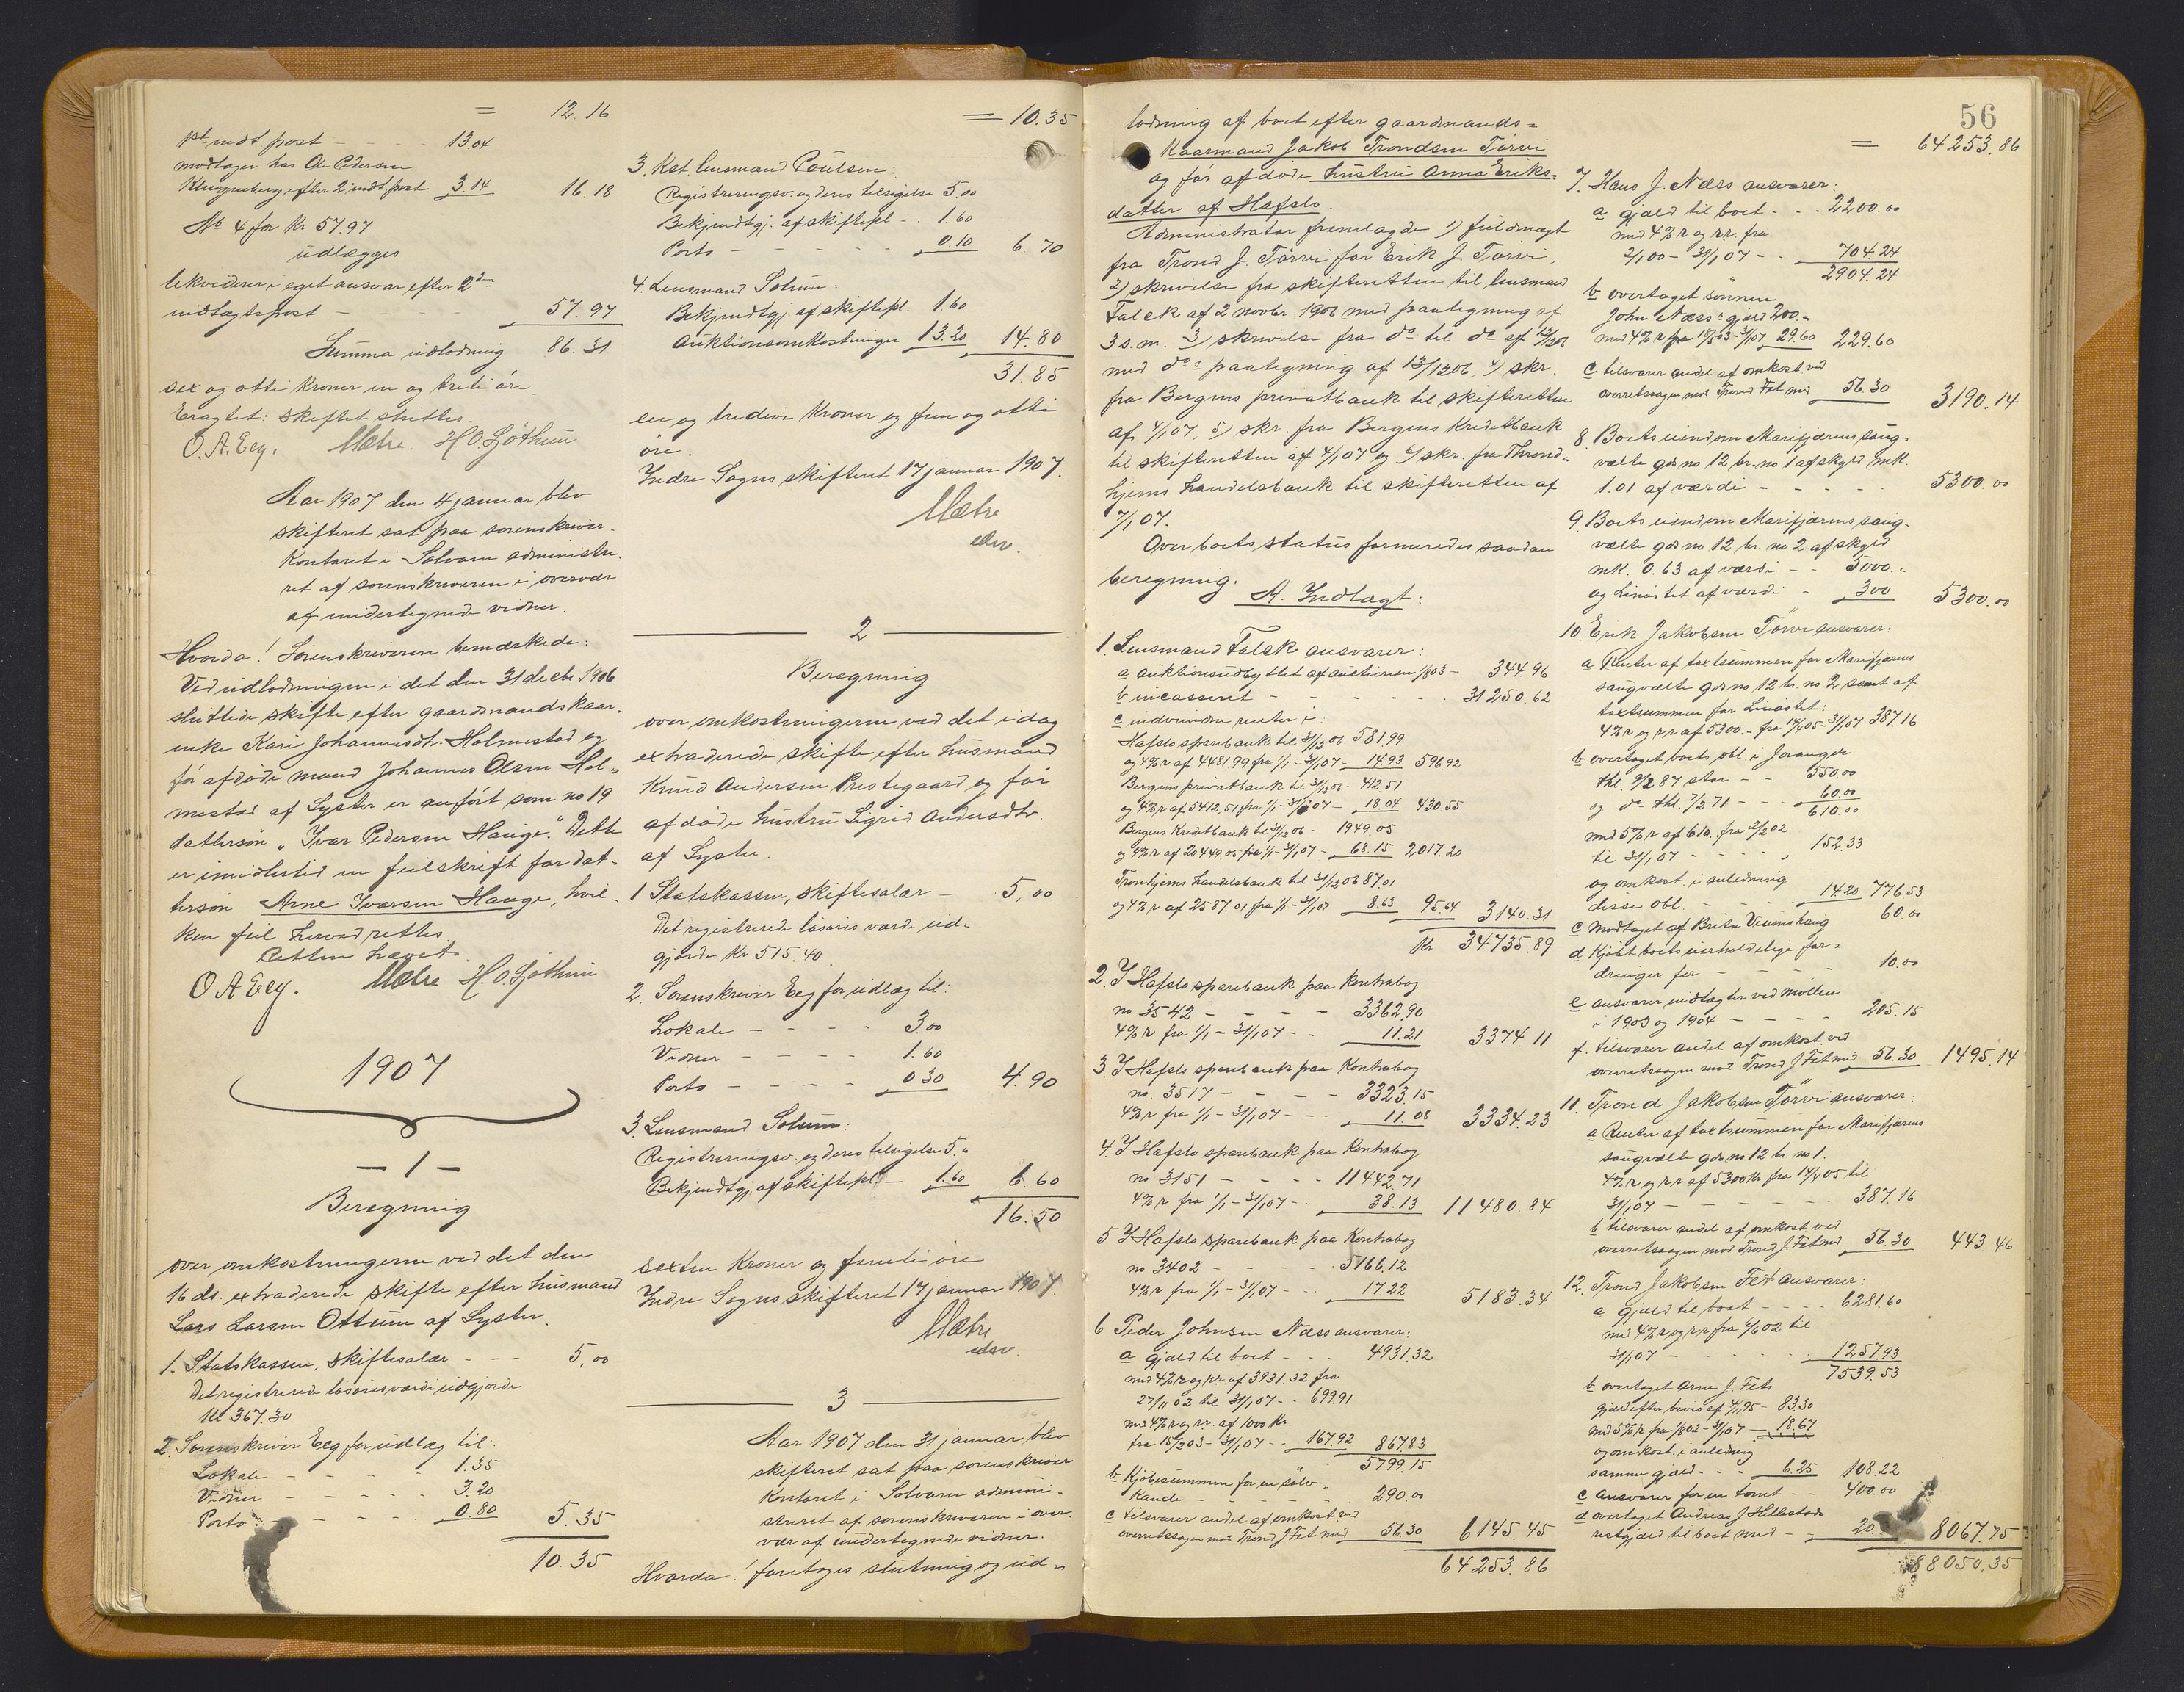 = 12.16
pt. indt post - - - 13.04
modtager hos Ole Pedersen
Klingenberg efter 2 indt post 3.14 16.18
No 4 for Kr 57.97
udlægges
i eget ansvar efter 2den
indtægtspost - - - 57.97
Summa udlodning 86.31
sex og otti Kroner en og treti öre.
Eragtet: Skiftet sluttes.
O. A. Eeg. Mætre. H. O. Gjöthun
Aar 1907 den 4 januar blev
skifteret sat paa sorenskriver-
kontoret i Solvorn administre-
ret af sorenskriveren i overvær
af undertegnede vidner.
Hvorda! Sorenskriveren bemærkede:
Ved udlodningen i det den 31 decbr. 1906
sluttede skifte efter gaardmandskaar-
enke Kari Johannesdtr. Holmestad og
før afdøde mand Johannes Olsen Hol-
mestad af Lyster er anført som no 19
dattersøn "Ivar Pedersen Hauge". Dette
er imidlertid en feilskrift for dat-
tersøn Arne Ivarsen Hauge, hvil-
ken feil herved rettes.
Retten hævet.
O A Eeg. Mætre H. O. Gjöthun
1907
- 1 -
Beregning
over omkostningerne ved det den
16 ds. extraderede skifte efter husmand
Lars Larsen Ottum af Lyster.
1. Statskassen, skiftesalær - - - 5,00
Det registrerede løsøres værdi udgjorde
Kr 367.30
2. Sorenskriver Eeg for udlæg til:
Lokale - - - - 1.35
Vidner - - - - 3.20
Porto - - - - 0.80 5.35
10.35
= 10.35
3. Kst. lensmand Poulsen:
Registreringsv. og deres tilsigelse 5.00
Bekjendtgj. af skiftepl. - - 1.60
Porto - - - - 0.10 6.70
4. Lensmand Solum.
Bekjendtgj. af skiftepl. 1.60
Auktionsomkostninger 13.20 14.80
31.85
en og tredeve Kroner og fem og otti
öre.
Indre Sogns skifteret 17 januar 1907.
Mætre
edsv.
2
Beregning
over omkostningerne ved det idag
extraderede skifte efter husmand
Knud Andersen Prestegaard og før
afdøde hustru Sigrid Andersdtr.
af Lyster.
1 Statskassen, skiftesalær - 5,00
Det registrerede løsøres værdi ud-
gjorde Kr 515.40
2. Sorenskriver Eeg for udlæg til:
Lokale - - - - 3.00
Vidner - - - - 1.60
Porto - - - - 0.30 4.90
3. Lensmand Solum:
Registreringsv. og deres tilsigelse 5.„
Bekjendtgj. af skiftepl. - 1.60 6.60
16.50
sexten Kroner og femti øre
Indre Sogns skifteret 17 januar 1907.
Mætre
edsv.
3
Aar 1907 den 31 januar blev
skifteret sat paa sorenskriver
kontoret i Solvorn admini-
streret af sorenskriveren i over-
vær af undertegnede vidner.
Hvorda! foretoges slutning og ud-
56
lodning af boet efter gaardmands-
kaarmand Jakob Trondsen Tørvi
og før afdøde hustru Anna Eriks-
datter af Hafslo.
Administrator fremlagde 1) fuldmagt
fra Trond J. Tørvi for Erik J. Tørvi,
2) skrivelse fra skifteretten til lensmand
Falck af 2 novbr. 1906 med paategning af
3 s.m. 3) skrivelse fra do til do af 12/12 06
med dos paategning af 13/12 06, 4) skr.
fra Bergens privatbank til skifteretten
af 4/1 07, 5) skr. fra Bergens Kreditbank
til skifteretten af 4/1 07 og 6) skr. fra Thrond-
hjems handelsbank til skifteretten af
7/1 07.
Over boets status formeredes saadan
beregning.
A. Indtægt:
1. Lensmand Falck ansvarer:
a auktionsudbyttet af auctionen /8 03 - 344.96
b incasseret - - - - 31250.62
c indvundne renter i:
Hafslo sparebank til 31/12 06 581.99
og 4% r af 4481.99 fra 1/1 - 31/1 07 - 14.93 596.92
Bergens privatbank til 31/12 06 - 412.51
og 4% r af 5412.51 fra 1/1 - 31/1 07 - 18.04 430.55
Bergens Kreditbank til 31/12 06 - 1949.05
og 4% r af 20449.05 fra 1/1 - 31/1 07 - 68.15 2017.20
Tronhjems handelsbank til 31/12 06 87.01
og 4% r af 2587.01 fra 1/1 - 31/1 07 8.63 95.64 3140.31
Kr 34735.89
2. I Hafslo sparebank paa Kontrabog
no 3542 - - - - 3362.90
4% r fra 1/1 - 31/1 07 - - 11.21 3374.11
3. I Hafslo sparebank paa Kontrabog
no. 3517 - - - - 3323.15
4% r fra 1/1 - 31/1 07 - - - 11.08 3334.23
4. I Hafslo sparebank paa Kontrabog
no 3151 - - - - 11442.71
4% r fra 1/1 - 31/1 07 - - 38.13 11480.84
5 I Hafslo sparebank paa Kontrabog
no 3402 - - - - 5166.12
4% r fra 1/1 - 31/1 07 - - - 17.22 5183.34
6 Peder Johnsen Næss ansvarer:
a gjæld til boet - - - 4931.32
med 4% r og r.r af 3931.32 fra
27/11 02 til 31/1 07 - - 699.91
med 4% r og r.r. af 1000 Kr.
fra 15/2 03 - 31/1 07 - - 167.92 867.83
5799.15
b Kjøbesummen for en sølv-
kande - - - - 290.00
c tilsvarer andel af omkost. ved
overretssagen mod Trond J Fet med 56.30 6145.45
64253.86
= 64253.86
7. Hans J. Næss ansvarer:
a gjæld til boet - - - 2200.00
med 4% r og r.r. fra
2/1 00 - 31/1 07 - - 704.24
2904.24
b overtaget sønnen
John Næss' gjæld 200.„
med 4% r fra 18/5 03 - 31/1 07 29.60 229.60
c tilsvarer andel af omkost ved
overretssagen mod Trond Fet med 56.30 3190.14
8 Boets eiendom Marifjærens saug-
vælle gds no 12 br. no 1 af skyld mk.
1.01 af værdi - - - - 5300.00
9. Boets eiendom Marifjærens saug-
vælle gds no 12 br. no 2 af skyld
mk. 0.63 af værdi - - 5000.„
og Linåstet af værdi - 300 5300.00
10. Erik Jakobsen Tørvi ansvarer:
a Renter af taxtsummen for Marifjærens
saugvælle gds no 12 br. no 2 samt af
taxtsummen for Linåstet:
4% r og r.r af 5300.- fra 14/4 05 - 31/1 07 387.16
b overtaget boets obl. i Joranger
thl. 9/2 87 stor - - 550.00
og do thl. 7/2 71 - - - 60.00
610.00
med 5% r af 610.- fra 2/2 02
til 31/1 07 - - - - 152.33
og omkost. i anledning
disse obl. - - - - 14.20 776.53
c Modtaget af Brita Veumshaug 60.00
d Kjøbt boets uerholdelige for-
dringer for - - - - 10.00
e ansvarer indtægter ved møllen
i 1903 og 1904 - - - - 205.15
f. tilsvarer andel af omkost. ved
overretssagen mod Trond J. Fet med 56.30 1495.14
11. Trond Jakobsen Tørvi ansvarer:
a Renter af taxtsummen for Marifjærens
saugvælle gds no 12 br. no 1.
4% r og r.r af 5300 Kr fra 14/4 05 til
31/1 07 - - - - 387.16
b tilsvarer andel af omkost ved
overretssagen mod Trond J. Fet med 56.30 443.46
12. Trond Jakobsen Fet ansvarer:
a gjæld til boet - - - - 6281.60
med 4% r og r.r fra 6/1 02 til
31/1 07 - - - - 1257.93
7539.53
b overtaget Arne J. Fets
gjæld efter bevis af 4/1 95 - 83.30
med 5% r fra /8 02 - 31/1 07 - 18.67
og omkost. i anledning
samme gjæld - - - 6.25 108.22
c ansvarer for en tomt - - 400.00
d overtaget Andreas J Hillestads
restgjæld til boet med - - 20. 8067.75
88050.35